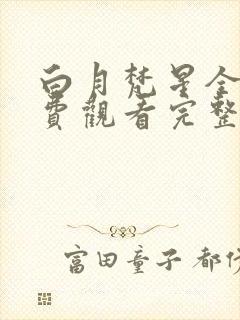 白月梵星全
費觀看完整
富田童子 都